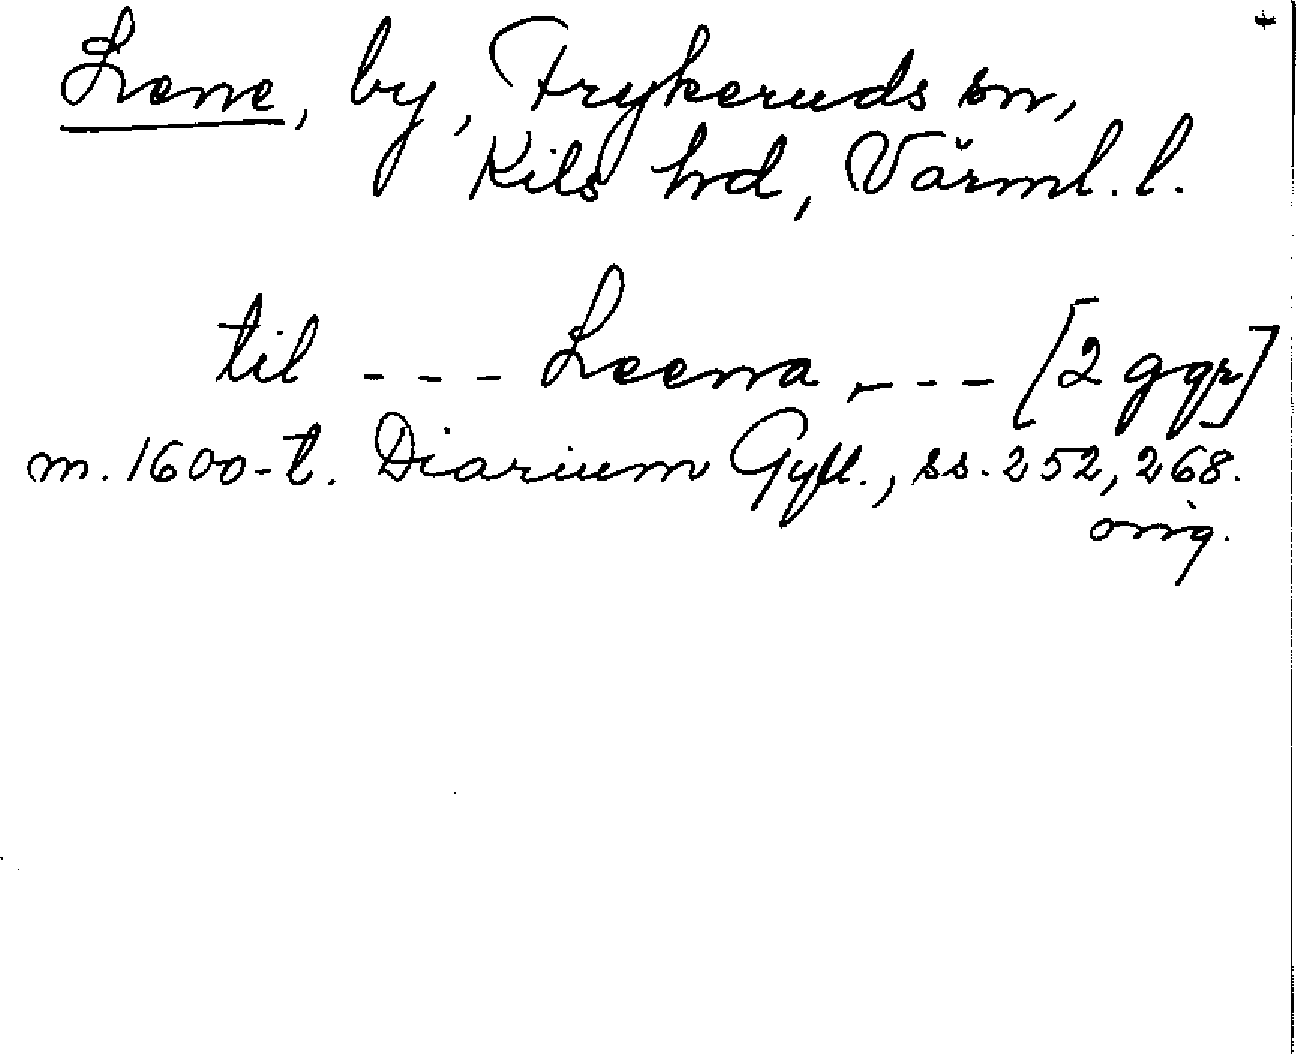 +
Lene, by, Frykeruds sn,
Kils hd, Värml. l.
til - - - Leena, - - - [2 ggr]
m. 1600-t. Diarium Gyll., ss. 252, 268.
orig.